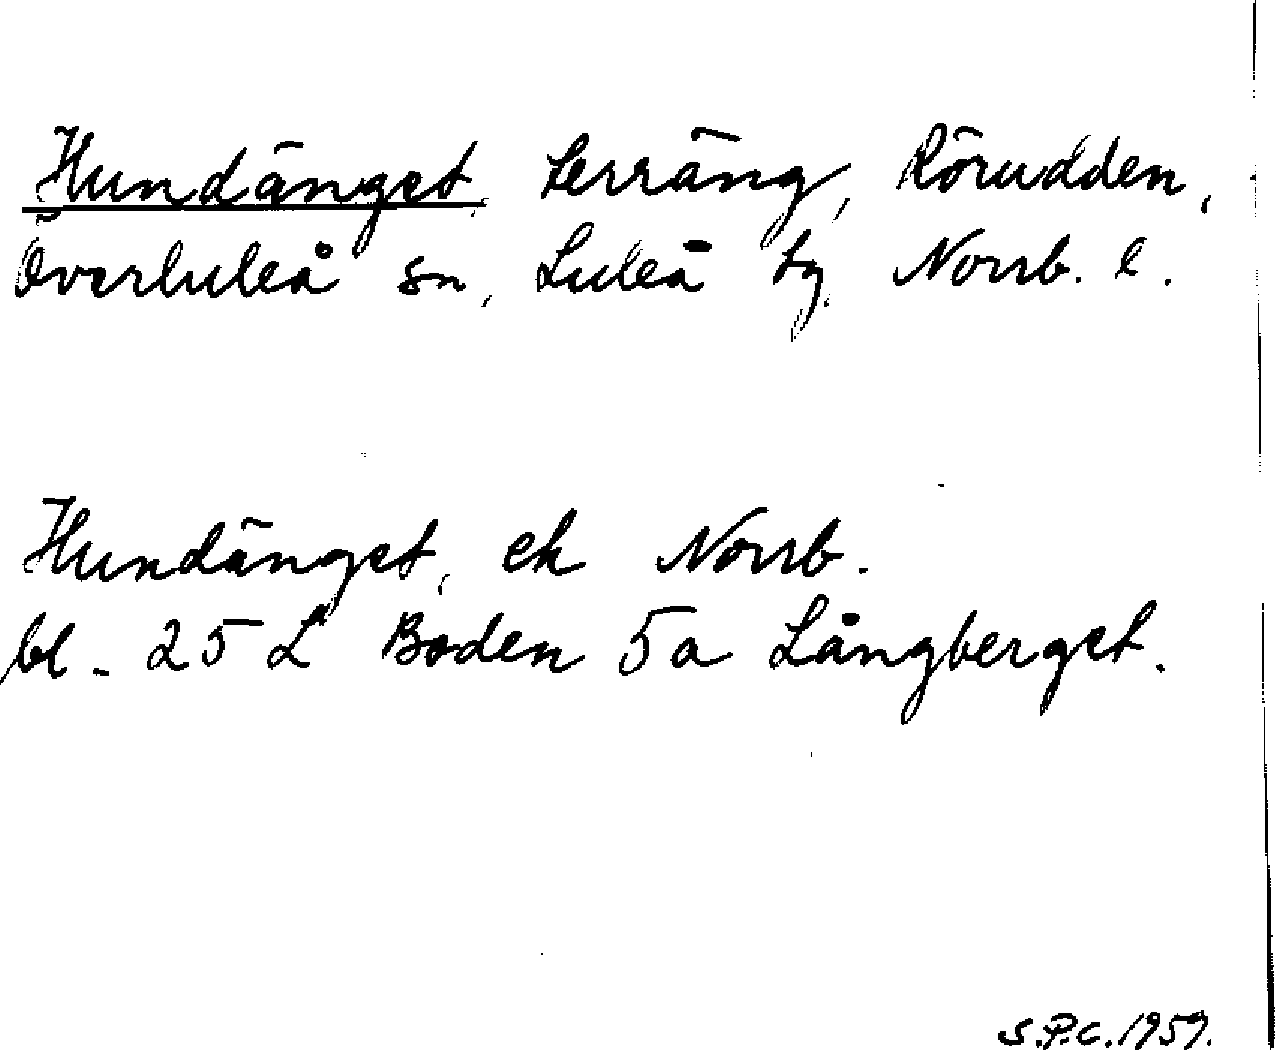 Hundänget, terräng, Rörudden,
Överluleå sn, Luleå tg, Norrb. l.
Hundänget, ek Norrb.
bl. 25 L Boden 5a Långberget.
S.P.C. 1959.